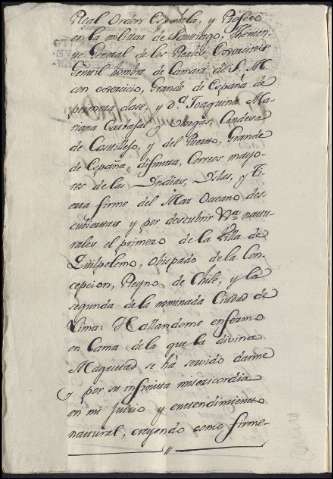 Real Orden Española, y Profeso
en la militar de Santiago, Thenien-
te General de los Reales Exercitos
Gentil hombre de Camara de S. M.
con exercicio, Grande de España de
primera clase, y Dª. Joaquina Ma-
riana Carbajal y Vargas, Condesa
de Castillejo, y del Puerto, Grande
de España, difuntos, Correos mayo-
res de las Yndias, Yslas, y Ti-
erra firme del Mar Oceano des-
cubiertas y por descubrir, natu-
rales el primero de la Villa de
Quilpolemo, obispado de la Con-
cepcion, Reyno de Chile, y la
segunda de la nominada Ciudad de
Lima: Hallandome enfermo
en cama de la que la divina
Magestad se ha servido darme
y por su infinita misericordia
en mi juicio y entendimiento
natural, creyendo como firme-